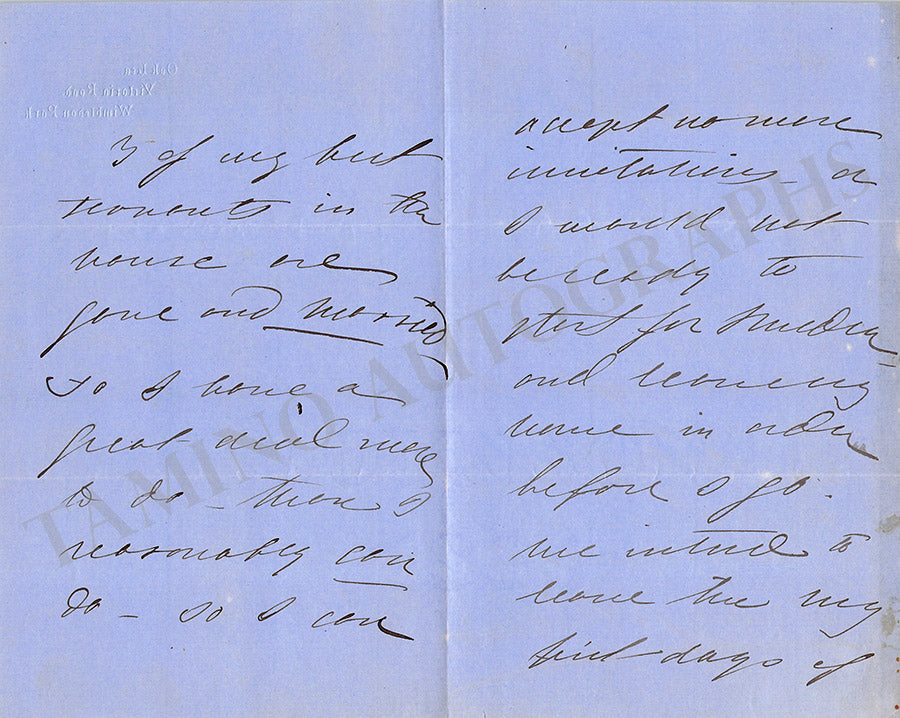 Oak Lea
Victoria Road
Wimbledon Park
3 of my best
servants in the
house are
gone and married
so I have a
great deal more
to do – then I
reasonably can
do – so I can
accept no more
invitations or
I would not
be ready to
start for Sweden
and leaving
house in order
before I go.
we intend to
leave the my
first days of
TAMINO AUTOGRAPHS